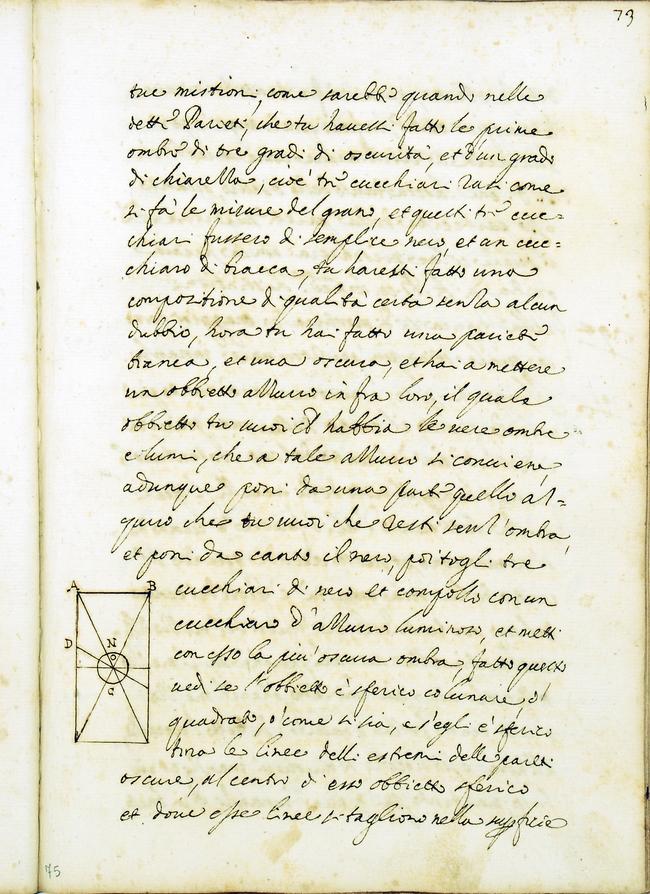 73
tue mistioni, come sarebbe quando nelle
dette Pareti, che tu havessi fatto le prime
ombre di tre gradi di oscurità, et d'un grado
di chiarezza, cioè tre cucchiari rasi come
si fà le misure del grano, et questi tre cuc=
chiari fussero di semplice nero, et un cuc=
chiaro di biacca, tu haresti fatto una
compositione di qualità certa senza alcun
dubbio, hora tu hai fatto una pariete
bianca, et una oscura, et hai a mettere
un obbietto azzurro in fra loro, il quale
obbietto tu vuoi che habbia le vere ombre
e lumi, che a tale azzurro si conviene,
adunque poni da una parte quello az=
zurro che tu vuoi che resti senz'ombra,
et poni da canto il nero, poi togli tre
cucchiari di nero et compollo con un
cucchiaro d'azzurro luminoso, et metti
con esso la più oscura ombra, fatto questo
vedi se l'obbietto è sferico colunare, ò
quadrato, ò come si sia, e s'egli è sferico
tira le linee delli estremi delle pareti
oscure, al centro di esso obbietto sferico
et dove esse linee si tagliono nella
A B
D N
O
G
75